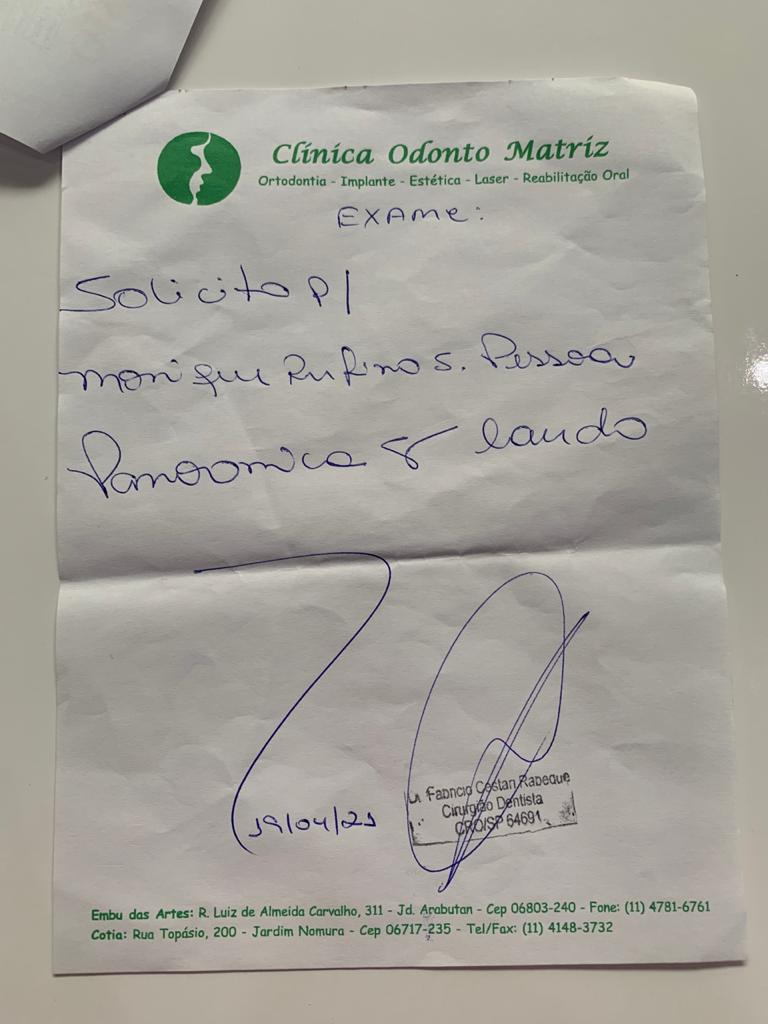 Clínica Odonto Matriz
Ortodontia - Implante - Estética - Laser - Reabilitação Oral
EXAME:
Solicito p/
Monique Rufino S. Pessoa
Panoramica laudo
19/04/21
Fabricio Costan Rabeque
Cirurgião Dentista
CRO/SP 64691
Embu das Artes: R. Luiz de Almeida Carvalho, 311 - Jd. Arabutan - Cep 06803-240 - Fone: (11) 4781-6761
Cotia: Rua Topásio, 200 - Jardim Nomura - Cep 06717-235 - Tel/Fax: (11) 4148-3732